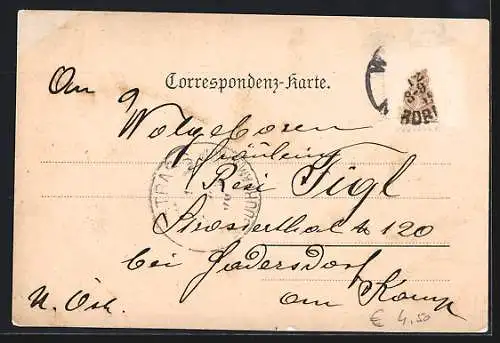 Correspondenz-Karte.
An
Wolgeboren
Fräulein
Resi Figl
Strasserthal № 120
bei Hadersdorf
am Kamp
N. Öst.
€ 4,50